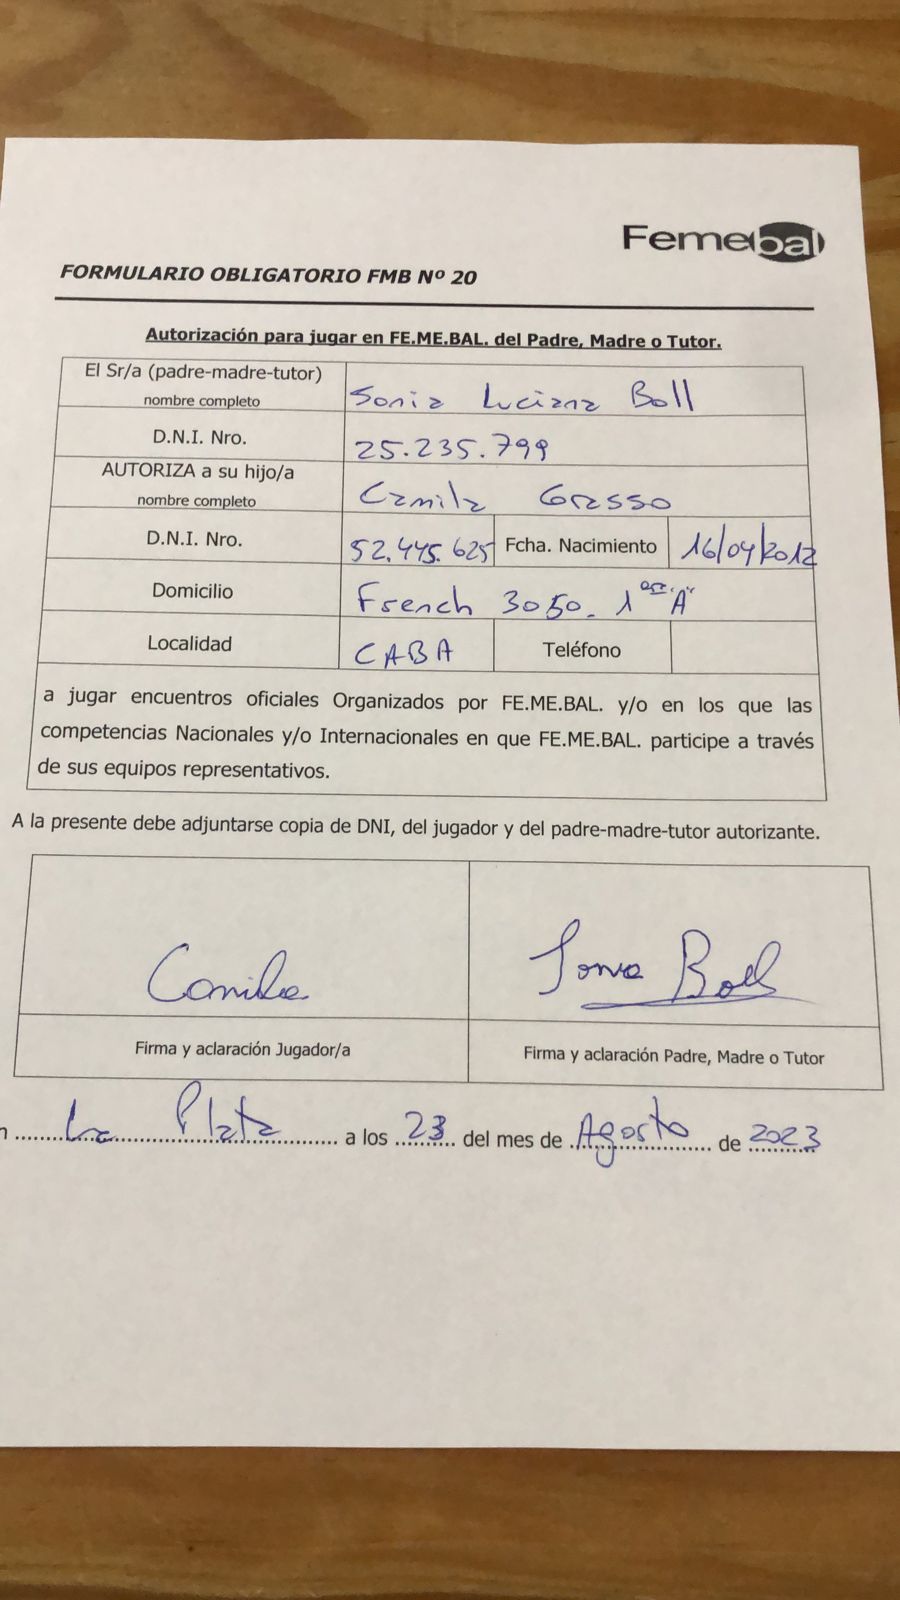 Femebal
FORMULARIO OBLIGATORIO FMB Nº 20
Autorización para jugar en FE.ME.BAL. del Padre, Madre o Tutor.
El Sr/a (padre-madre-tutor)
nombre completo
Sonia Luciana Boll
D.N.I. Nro.
25.235.799
AUTORIZA a su hijo/a
nombre completo
Camila Grasso
D.N.I. Nro.
52.445.625
Fcha. Nacimiento
16/04/2012
Domicilio
French 3050. 1 "A"
Localidad
CABA
Teléfono
a jugar encuentros oficiales Organizados por FE.ME.BAL. y/o en los que las
competencias Nacionales y/o Internacionales en que FE.ME.BAL. participe a través
de sus equipos representativos.
A la presente debe adjuntarse copia de DNI, del jugador y del padre-madre-tutor autorizante.
Camila
Sonia Boll
Firma y aclaración Jugador/a
Firma y aclaración Padre, Madre o Tutor
n La Plata a los 23 del mes de Agosto de 2023